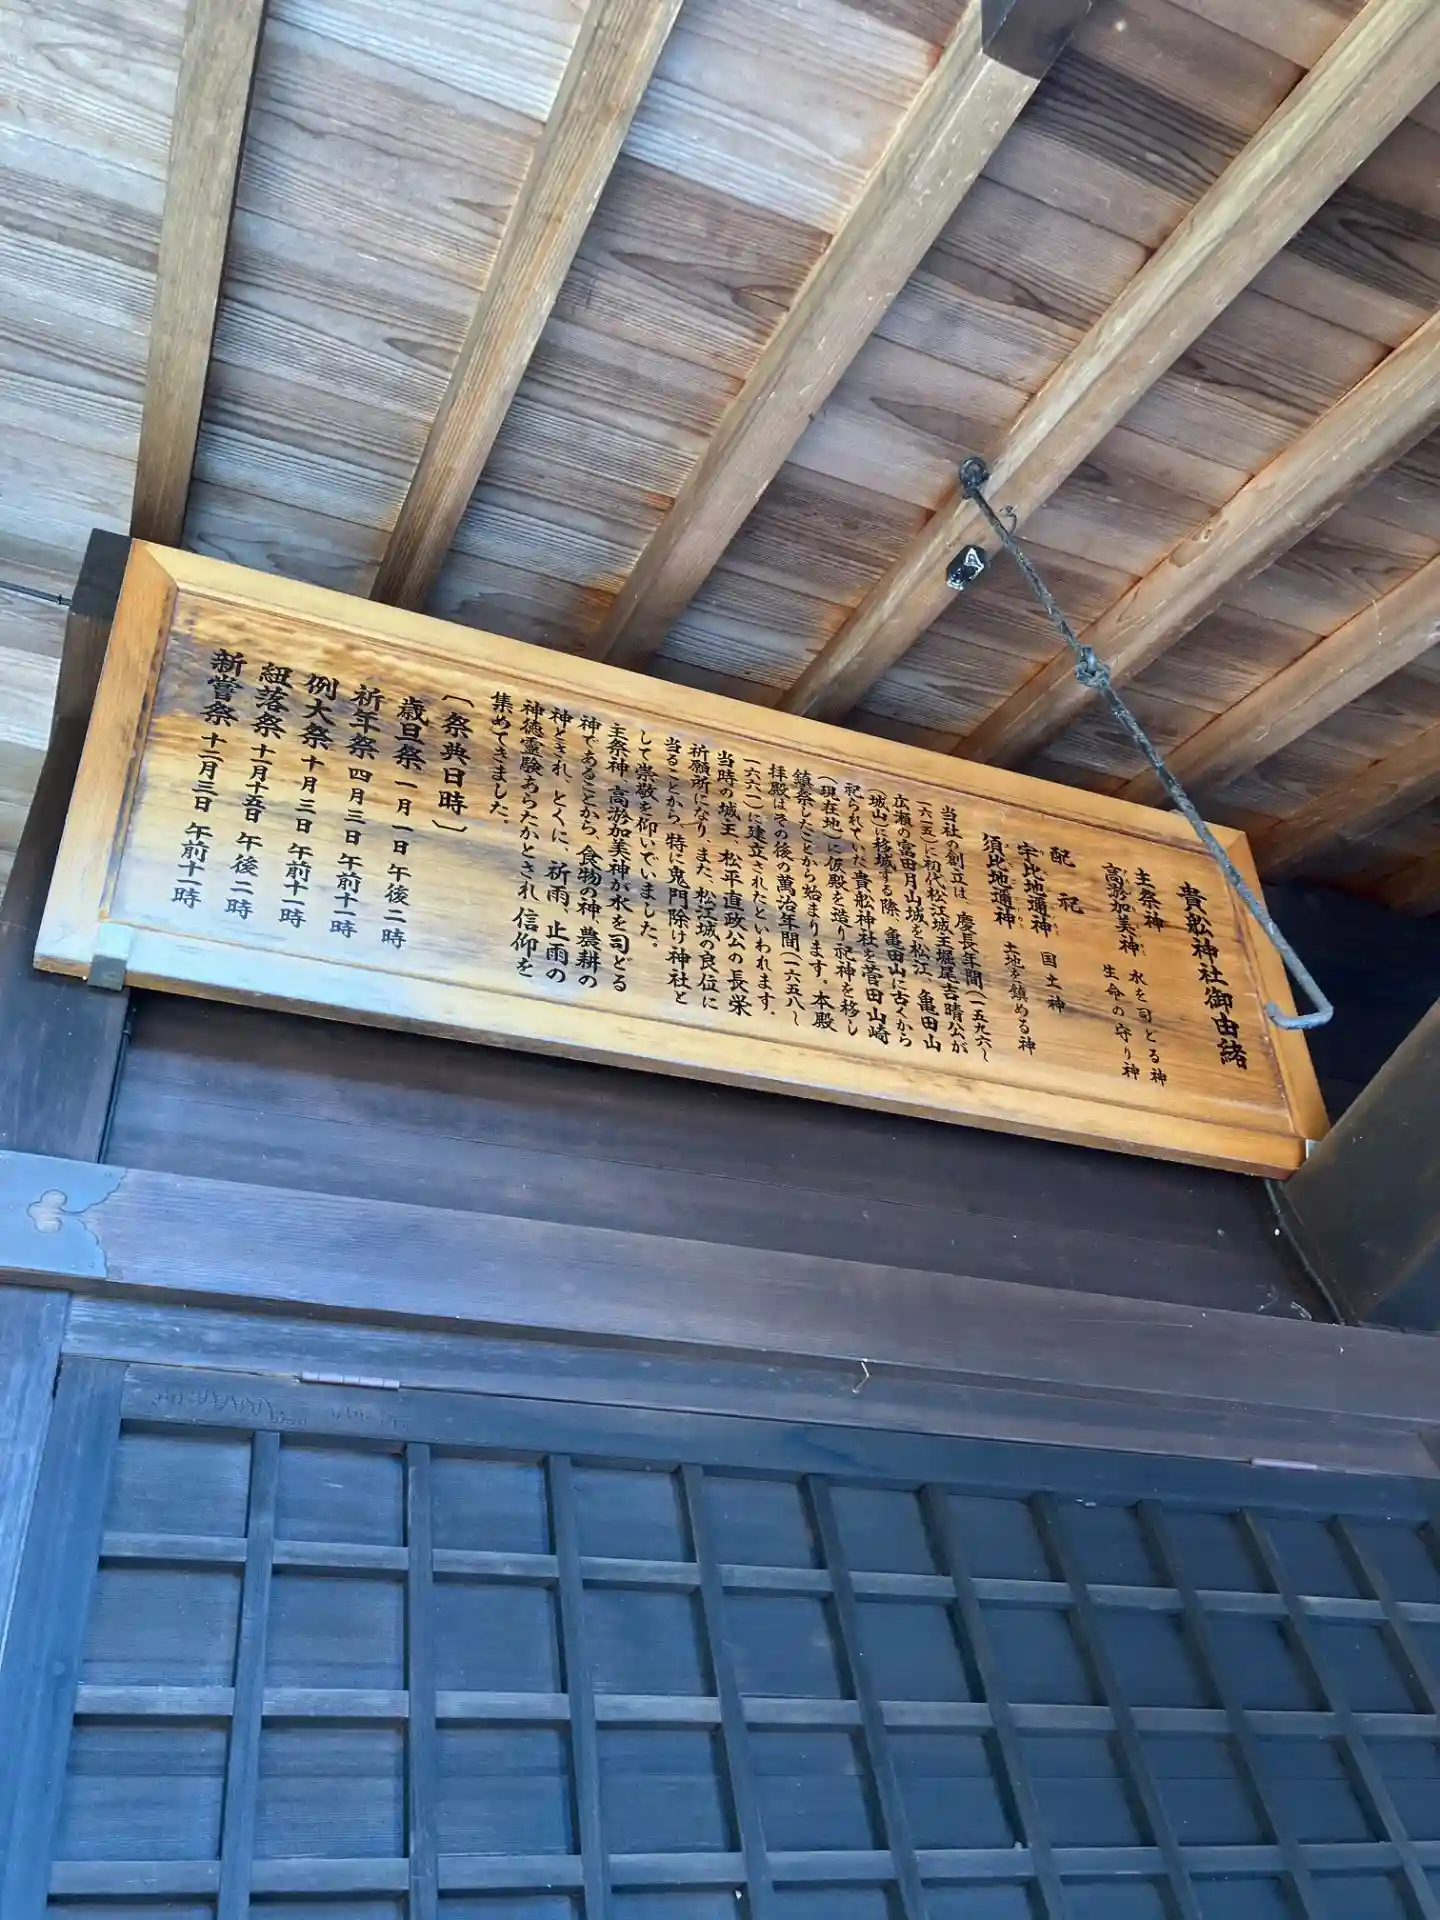 貴舩神社御由緒
主祭神 水を司とる神
高淤加美神 生命の守り神
配祀
宇比地邇神 国土神
須比地邇神 土地を鎮める神
当社の創立は、慶長年間(一五九六〜
一六一五)に初代松江城主堀尾吉晴公が
広瀬の富田月山城を松江、亀田山
(城山)に移城する際、亀田山に古くから
祀られていた貴舩神社を菅田山崎
(現在地)に仮殿を造り祀神を移し
鎮祭したことから始まります。本殿
拝殿はその後の萬治年間(一六五八〜
一六六一)に建立されたといわれます。
当時の城主、松平直政公の長栄
祈願所になり、また、松江城の良位に
当ることから、特に鬼門除け神社と
して崇敬を仰いでいました。
主祭神、高淤加美神が水を司どる
神であることから、食物の神、農耕の
神とされ、とくに、祈雨、止雨の
神徳霊験あらたかとされ、信仰を
集めてきました。
〔祭典日時〕
歳旦祭 一月一日 午後二時
祈年祭 四月三日 午前十一時
例大祭 十月三日 午前十一時
紐落祭 十一月十五日 午後二時
新嘗祭 十二月三日 午前十一時